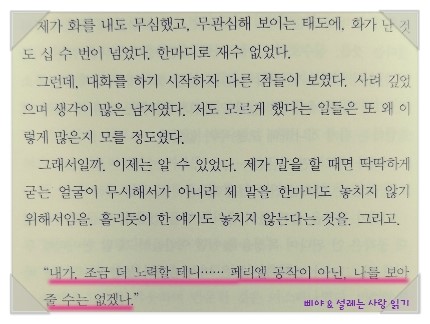 제가 화를 내도 무심했고, 무관심해 보이는 태도에. 화가 난 것
도 십 수 번이 넘었다. 한마디로 재수 없었다.
그런데, 대화를 하기 시작하자 다른 점들이 보였다. 사려 깊었
으며 생각이 많은 남자였다. 저도 모르게 했다는 일들은 또 왜 이
렇게 많은지 모를 정도였다.
그래서일까. 이제는 알 수 있었다. 제가 말을 할 때면 딱딱하게
굳는 얼굴이 무시해서가 아니라 제 말을 한마디도 놓치지 않기
위해서임을. 흘리듯이 한 얘기도 놓치지 않는다는 것을. 그리고.
“내가, 조금 더 노력할 테니…… 페리엔 공작이 아닌, 나를 보아
줄 수는 없겠나.”
삐야 & 설레는 사랑 읽기